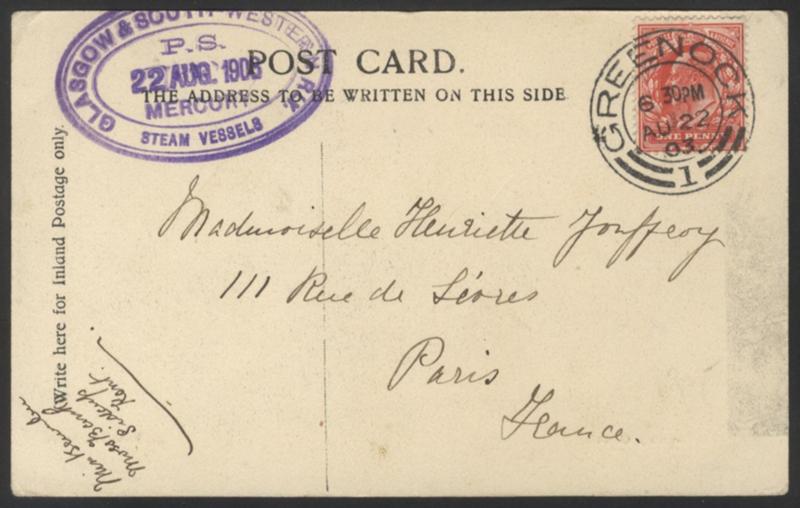 GLASGOW & SOUTH WESTERN
P.S.
22 AUG. 1903
MERCURY
STEAM VESSELS
POST CARD.
THE ADDRESS TO BE WRITTEN ON THIS SIDE
GREENOCK
6 30PM
AU 22
03
1
ONE PENNY
Mademoiselle Henriette Jouffroy
111 Rue de Sèvres
Paris
France.
Write here for Inland Postage only.
Miss
Kent.